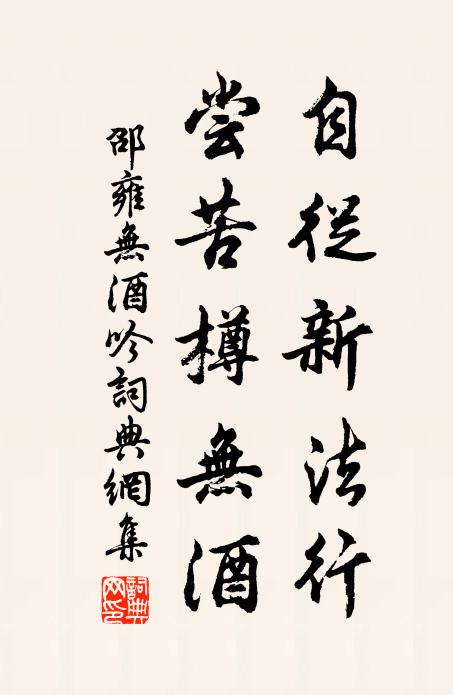 自從新法行
尝苦樽無酒
邵雍無酒吟詞典網集
詞典网印